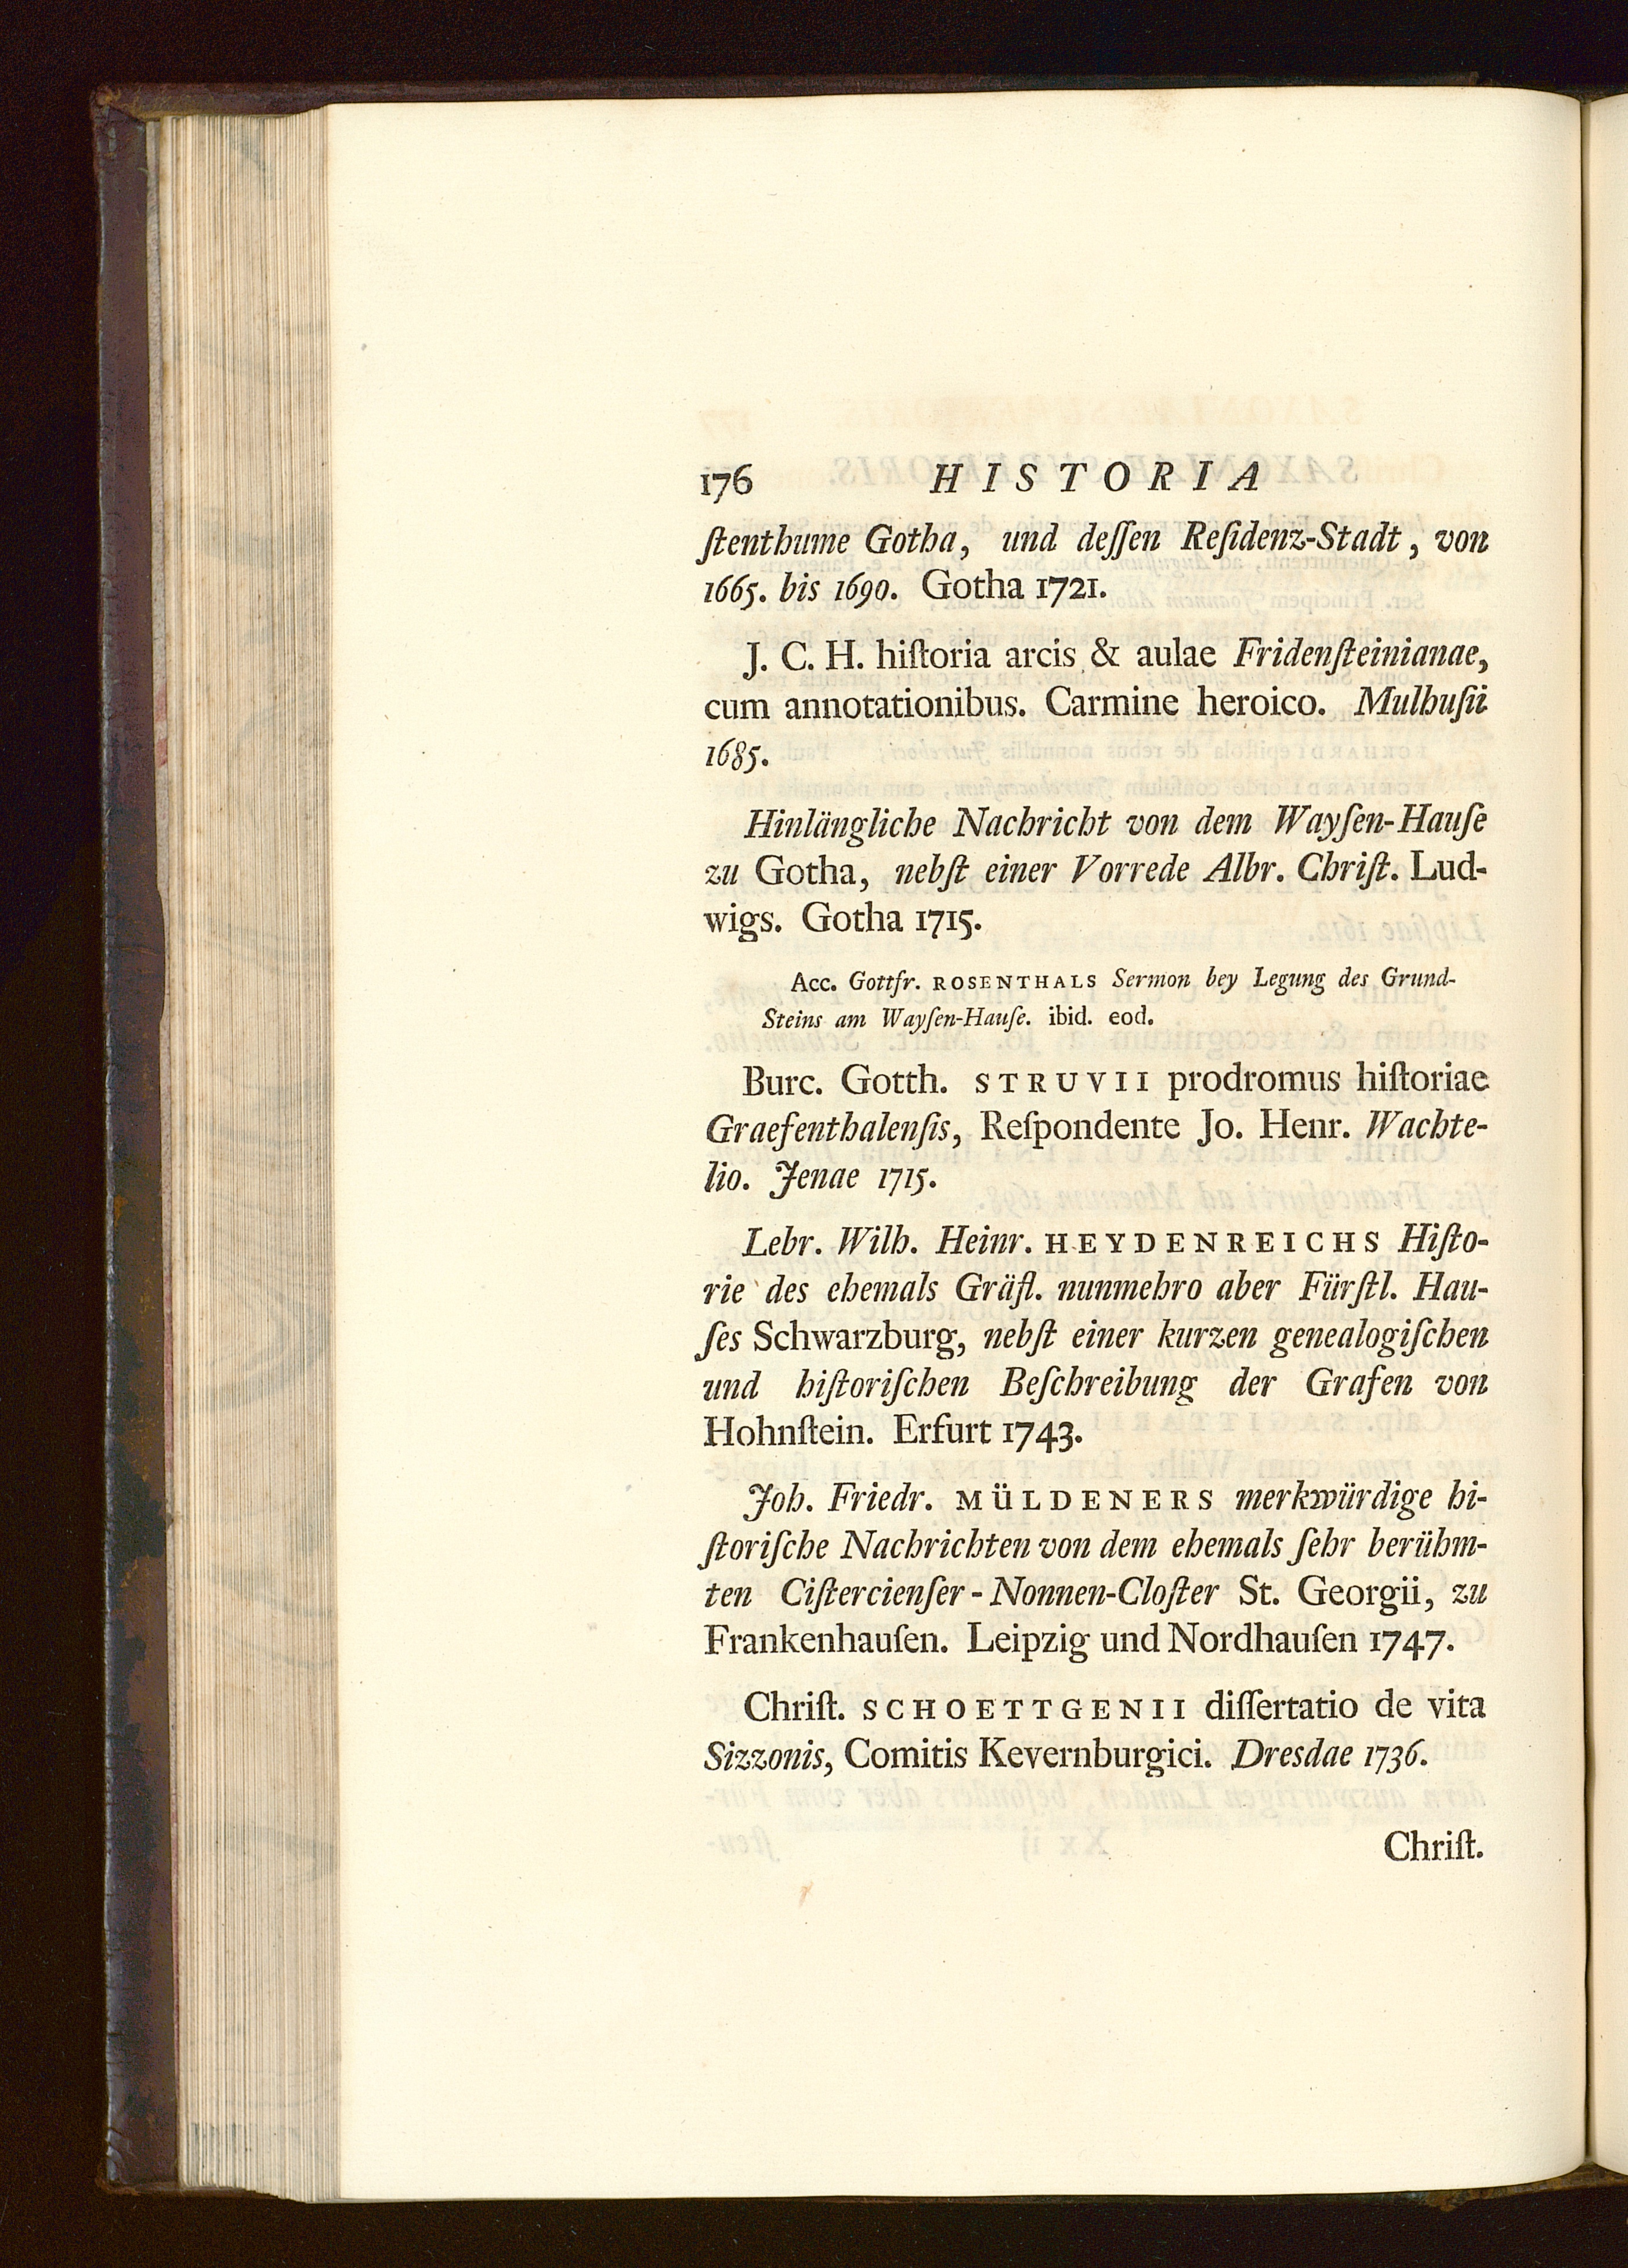 176 HISTORIA
ſtenthume Gotha, und deſſen Reſidenz-Stadt, von
1665. bis 1690. Gotha 1721.
J. C. H. hiſtoria arcis & aulae Fridenſteinianae,
cum annotationibus. Carmine heroico. Mulhuſii
1685.
Hinlängliche Nachricht von dem Wayſen-Hauſe
zu Gotha, nebſt einer Vorrede Albr. Chriſt. Lud-
wigs. Gotha 1715.
Acc. Gottfr. ROSENTHALS Sermon bey Legung des Grund-
Steins am Wayſen-Hauſe. ibid. eod.
Burc. Gotth. STRUVII prodromus hiſtoriae
Graefenthalenſis, Reſpondente Jo. Henr. Wachte-
lio. Jenae 1715.
Lebr. Wilh. Heinr. HEYDENREICHS Hiſto-
rie des ehemals Gräfl. nunmehro aber Fürſtl. Hau-
ſes Schwarzburg, nebſt einer kurzen genealogiſchen
und hiſtoriſchen Beſchreibung der Grafen von
Hohnſtein. Erfurt 1743.
Joh. Friedr. MÜLDENERS merkwürdige hi-
ſtoriſche Nachrichten von dem ehemals ſehr berühm-
ten Ciſtercienſer-Nonnen-Cloſter St. Georgii, zu
Frankenhauſen. Leipzig und Nordhauſen 1747.
Chriſt. SCHOETTGENII diſſertatio de vita
Sizzonis, Comitis Kevernburgici. Dresdae 1736.
Chriſt.